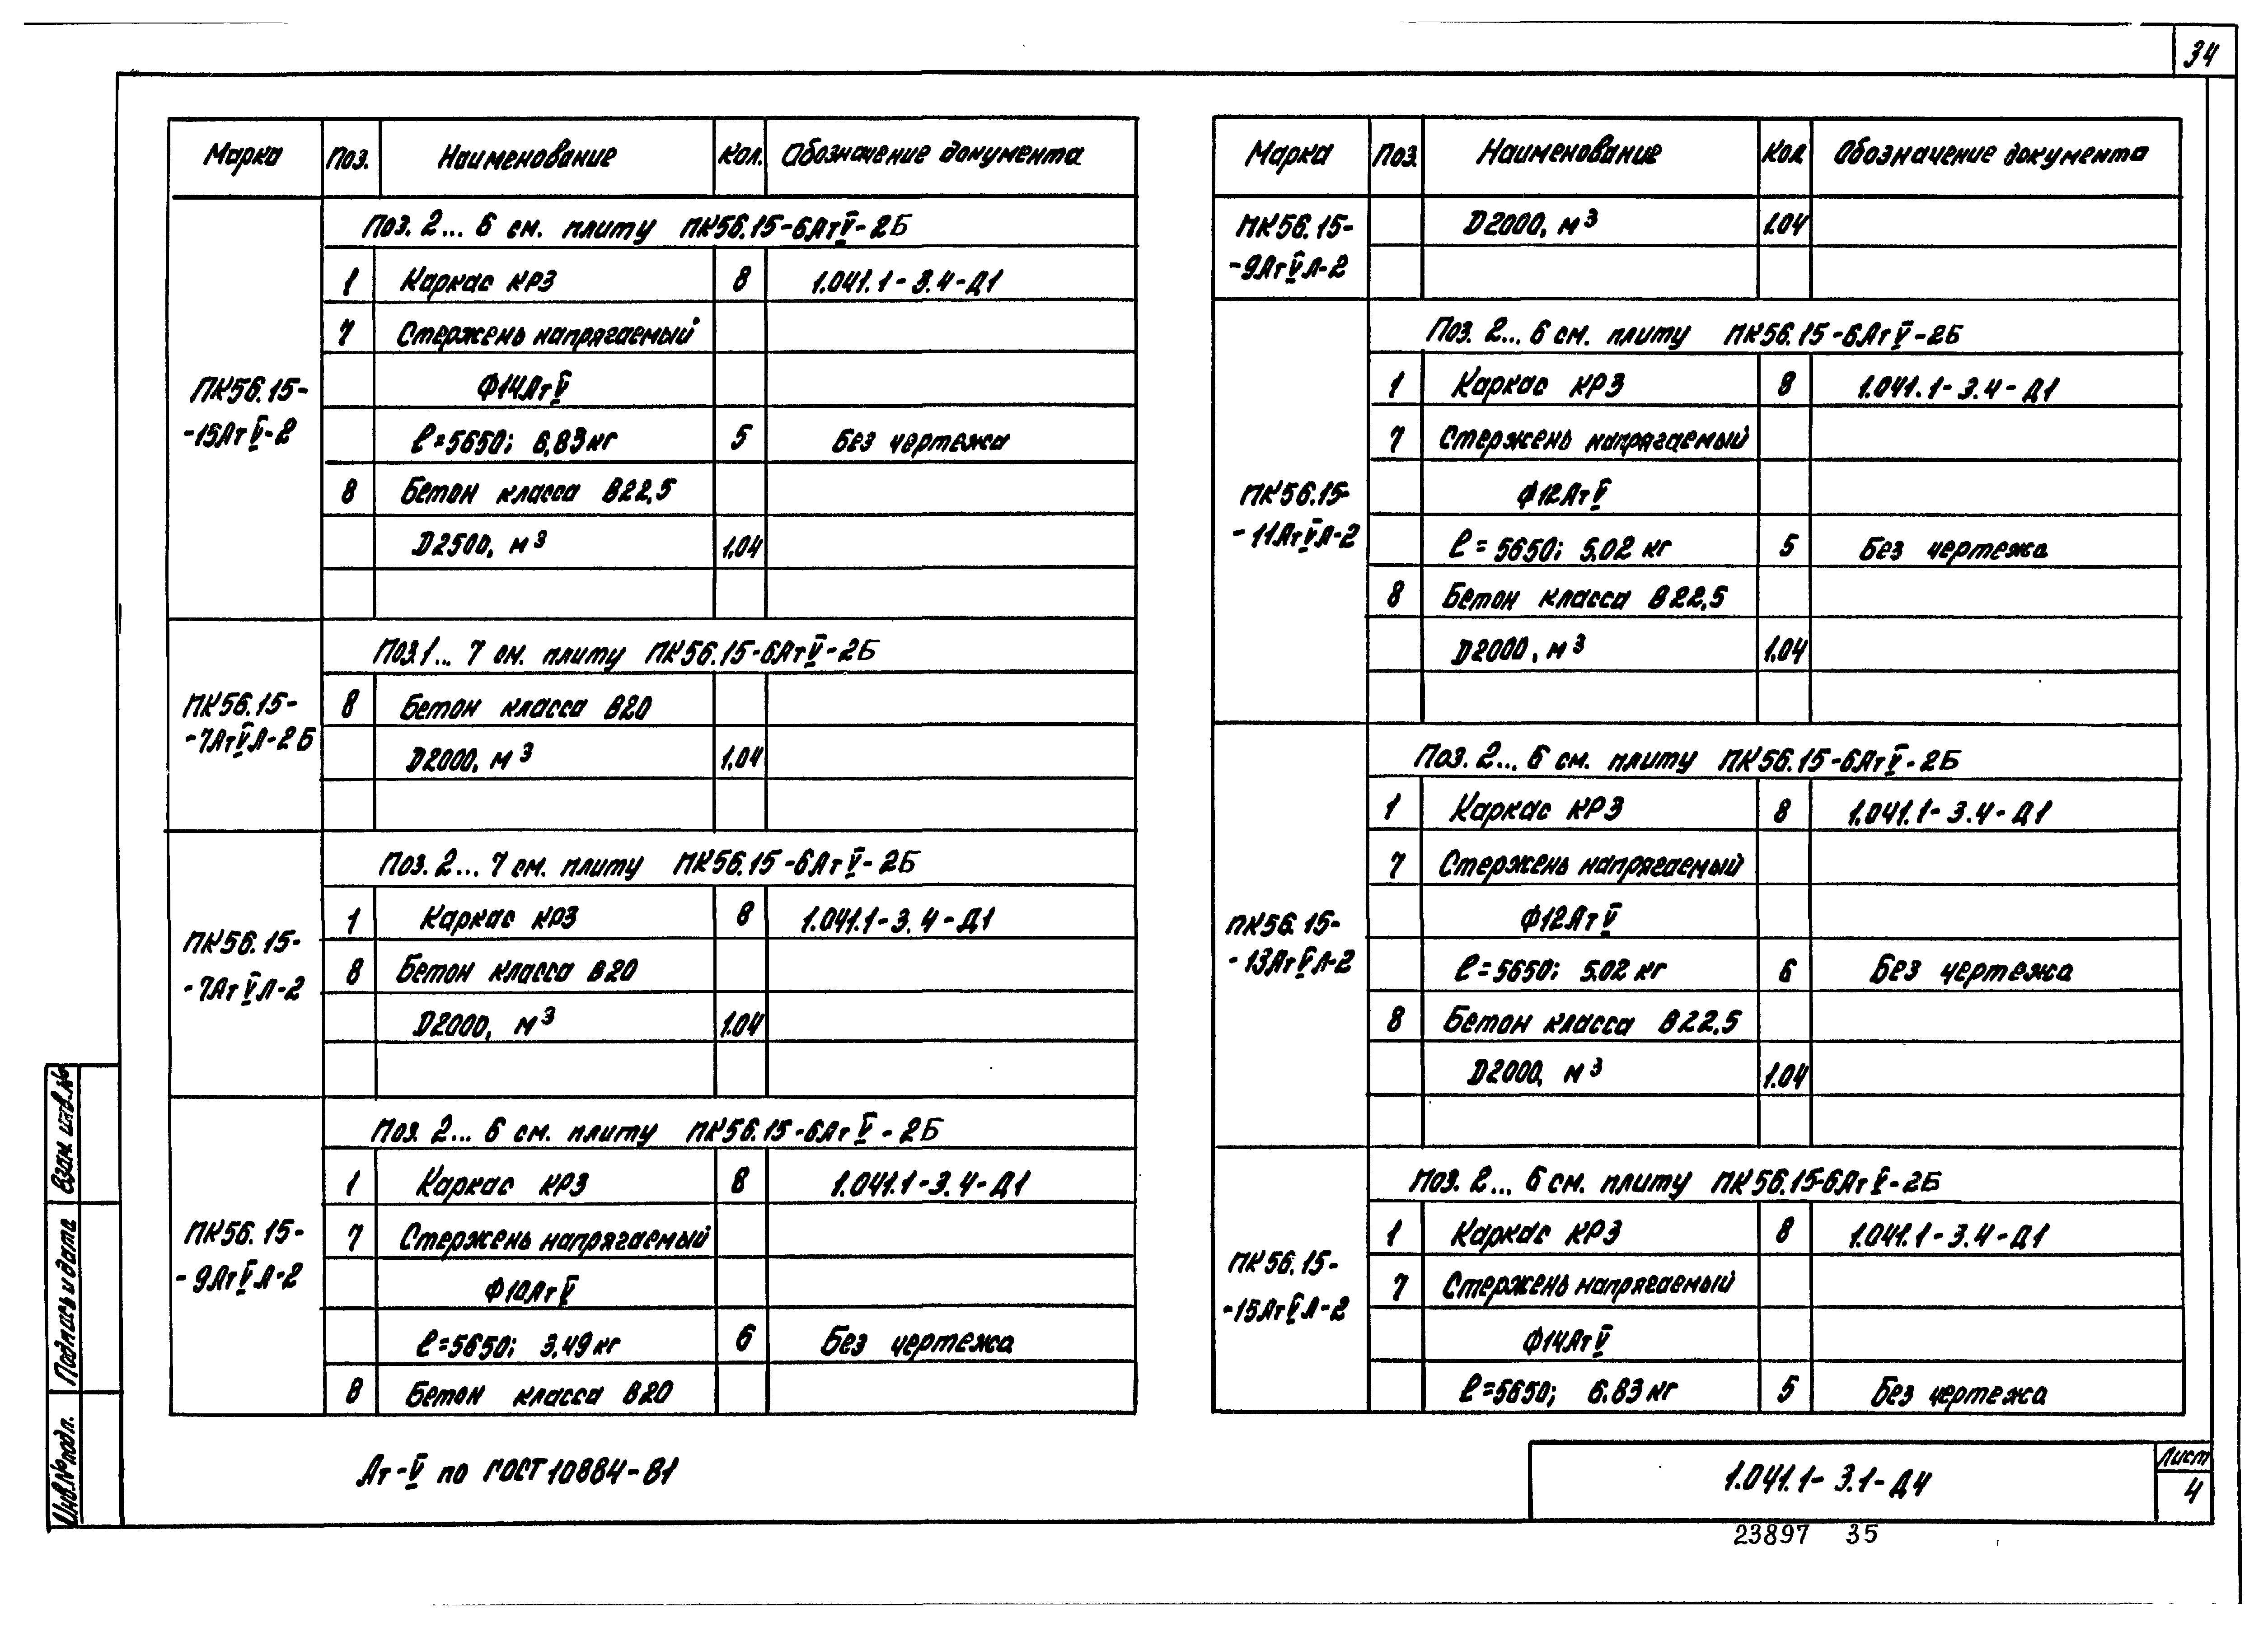 34
Марка Поз. Наименование Кол. Обозначение документа
Поз. 2... 6 см. плиту ПК56.15-6АтV-2Б
1 Каркас КР3 8 1.041.1-3.4-Д1
7 Стержень напрягаемый
Ф14АтV
ПК56.15-
-15АтV-2
ℓ=5650; 6,83кг 5 Без чертежа
8 Бетон класса В22,5
D2500, м3 1,04
Поз.1... 7 см. плиту ПК56.15-6АтV-2Б
ПК56.15-
-7АтVЛ-2Б
8 Бетон класса В20
D2000, м3 1,04
Поз. 2... 7 см. плиту ПК56.15-6АтV-2Б
1 Каркас КР3 8 1.041.1-3.4-Д1
ПК56.15-
-7АтVЛ-2
8 Бетон класса В20
D2000, м3 1.04
Поз. 2... 6 см. плиту ПК56.15-6АтV-2Б
1 Каркас КР3 8 1.041.1-3.4-Д1
ПК56.15-
-9АтVЛ-2
7 Стержень напрягаемый
Ф10АтV
ℓ=5650; 3.49кг 6 Без чертежа
8 Бетон класса В20
Марка Поз. Наименование Кол Обозначение документа
ПК56.15-
-9АтVЛ-2
D2000, м3 1.04
Поз. 2... 6 см. плиту ПК56.15-6АтV-2Б
1 Каркас КР3 8 1.041.1-3.4-Д1
7 Стержень напрягаемый
ПК56.15-
-11АтVЛ-2
Ф12АтV
ℓ=5650; 5.02 кг 5 Без чертежа
8 Бетон класса В22,5
D2000, м3 1,04
Поз. 2... 6 см. плиту ПК56.15-6АтV-2Б
1 Каркас КР3 8 1.041.1-3.4-Д1
7 Стержень напрягаемый
ПК56.15-
-13АтVЛ-2
Ф12АтV
ℓ=5650; 5.02 кг 6 Без чертежа
8 Бетон класса В22,5
D2000, м3 1.04
Поз. 2... 6 см. плиту ПК56.15-6АтV-2Б
1 Каркас КР3 8 1.041.1-3.4-Д1
ПК56.15-
-15АтVЛ-2
7 Стержень напрягаемый
Ф14АтV
ℓ=5650; 6.83кг 5 Без чертежа
Взам. инв.№
Подпись и дата
Инв.№подл.
Ат-V по ГОСТ 10884-81
1.041.1-3.1-Д4
Лист
4
23897 35